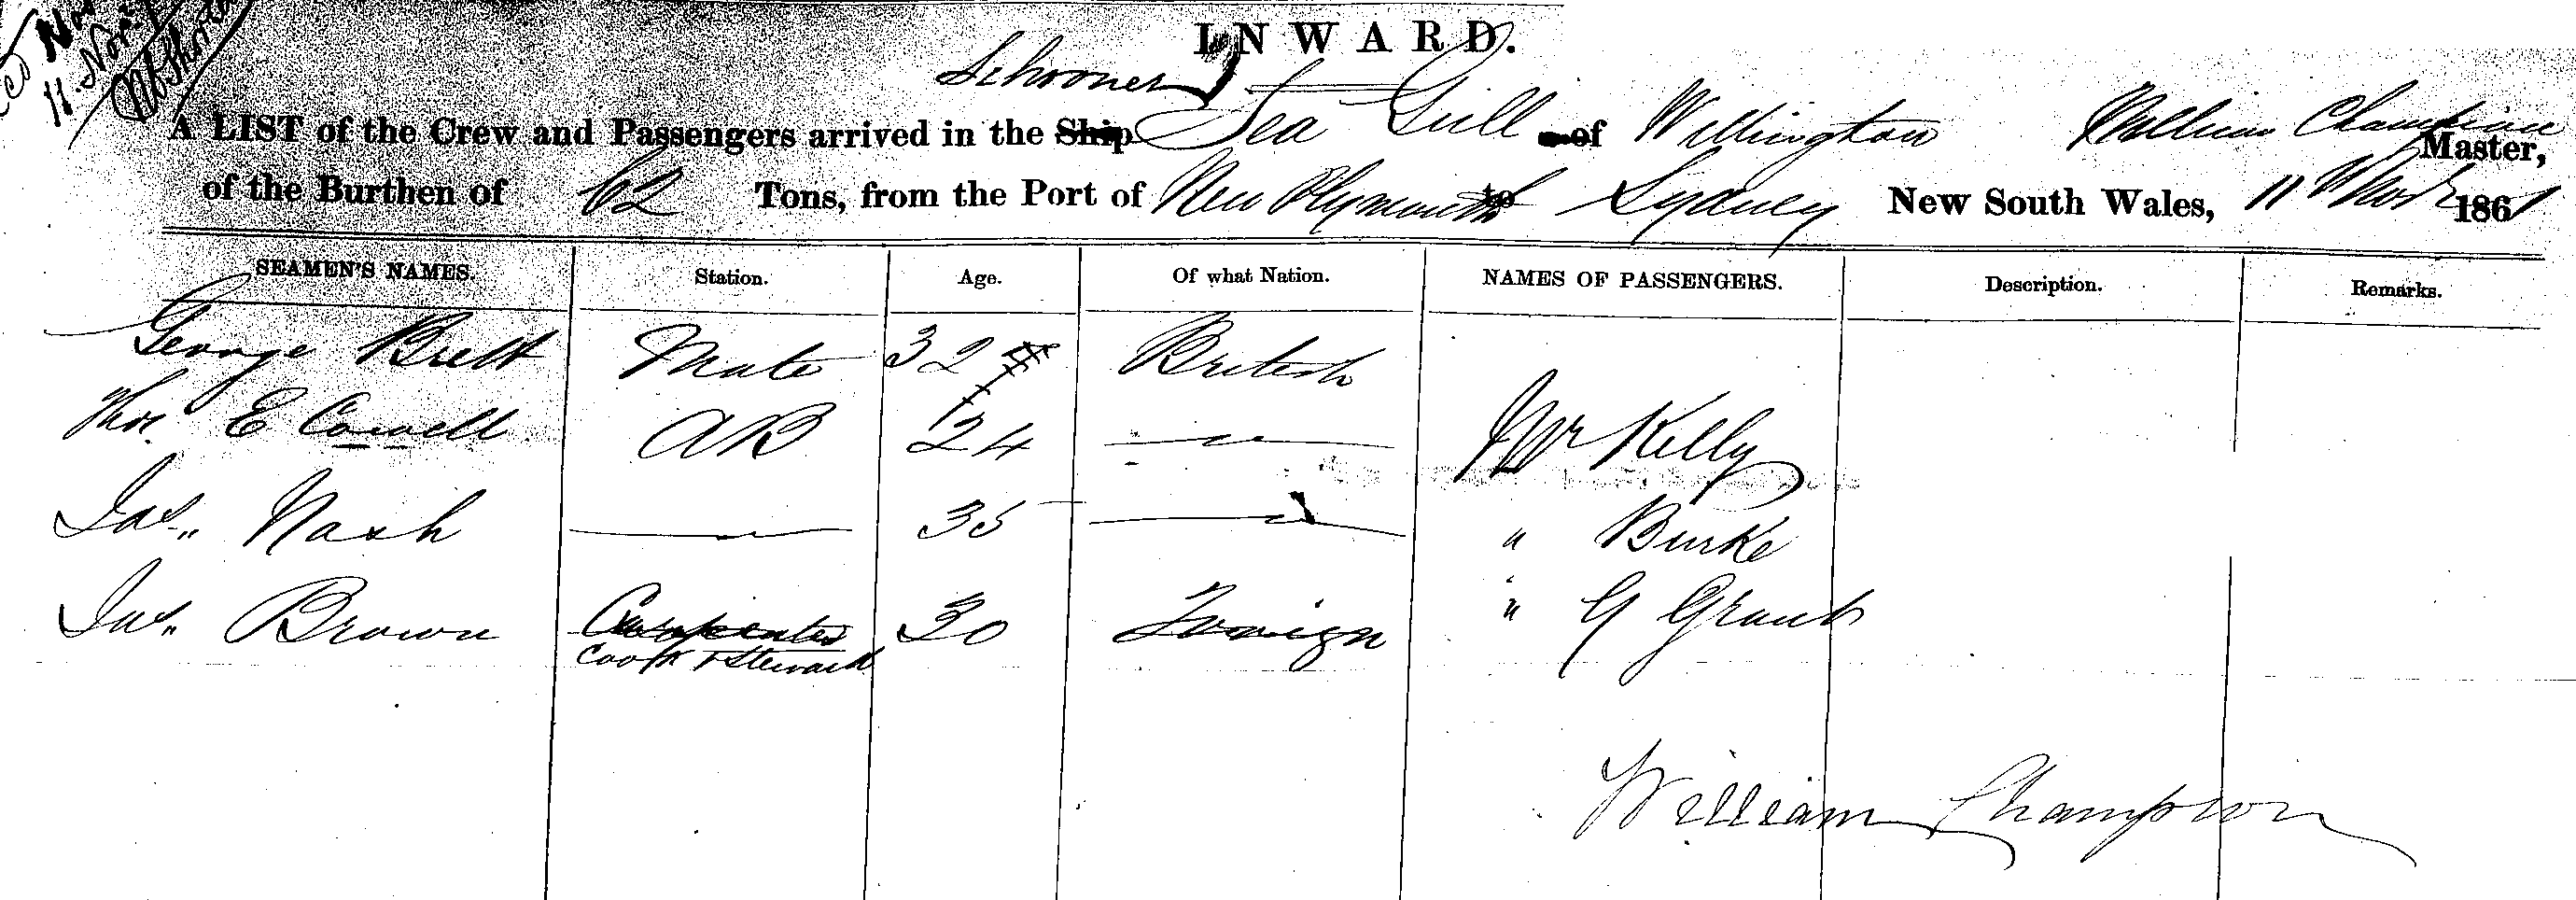 11 Nov
INWARD.
Schooner
A LIST of the Crew and Passengers arrived in the Ship Sea Gull of Wellington William Champion Master,
of the Burthen of 62 Tons, from the Port of New Plymouth to Sydney New South Wales, 11 Nov 1861
SEAMEN'S NAMES. Station. Age. Of what Nation. NAMES OF PASSENGERS. Description. Remarks.
George Brett Mate 32 British
Thos. E Cowell AB 24 — " — Mr Kelly
Jas. Nash — " — 35 — " — " Burke
Jas. Brown Carpenter 30 Foreign " G Grant
Cook & Steward
William Champion